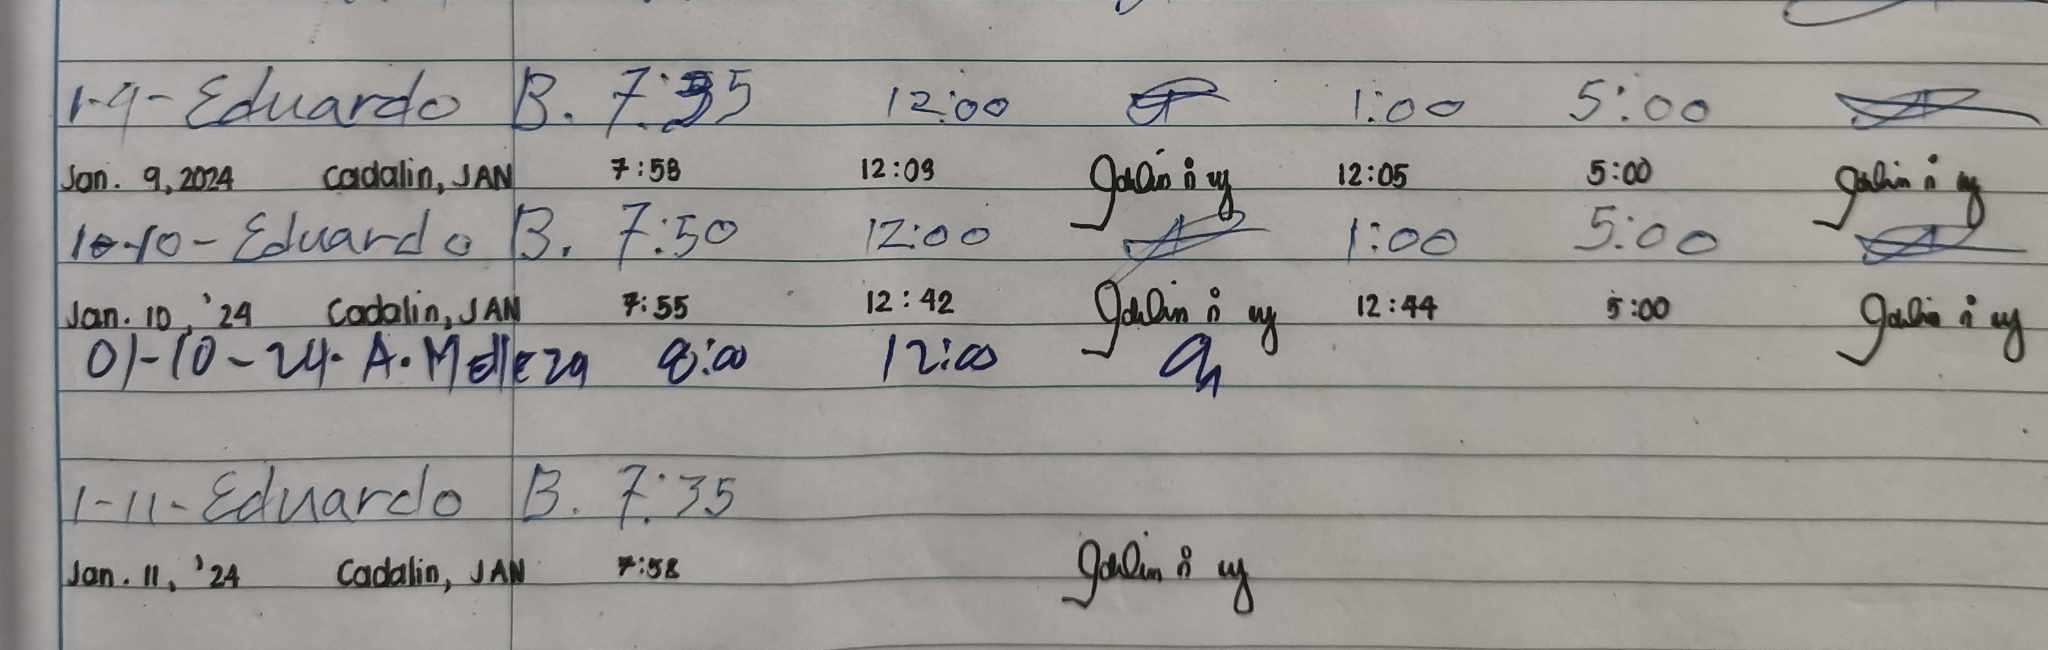 1-9- Eduardo B. 7:35 12:00 1:00 5:00
Jan. 9, 2024 Cadalin, JAN 7:58 12:03 12:05 5:00
10-10- Eduardo B. 7:50 12:00 1:00 5:00
Jan. 10, '24 Cadalin, JAN 7:55 12:42 12:44 5:00
01-10-24. A. 8:00 12:00
1-11- Eduardo B. 7:35
Jan. 11, '24 Cadalin, JAN 7:58